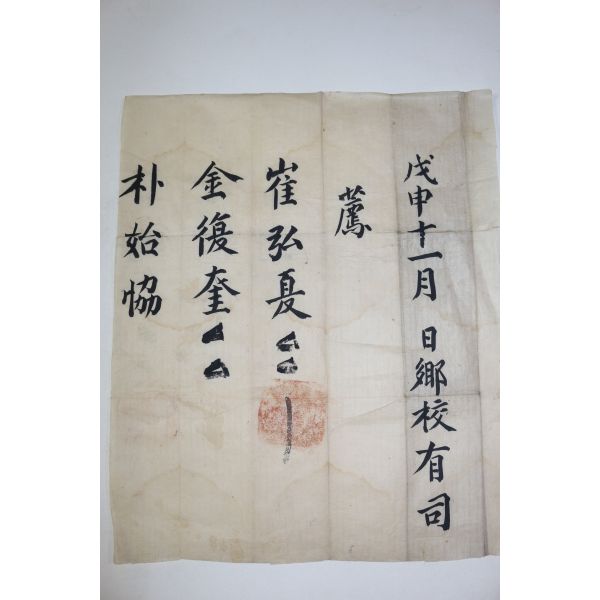 戊申十一月 日鄉校有司
薦
崔弘夏
金復奎
朴始恊